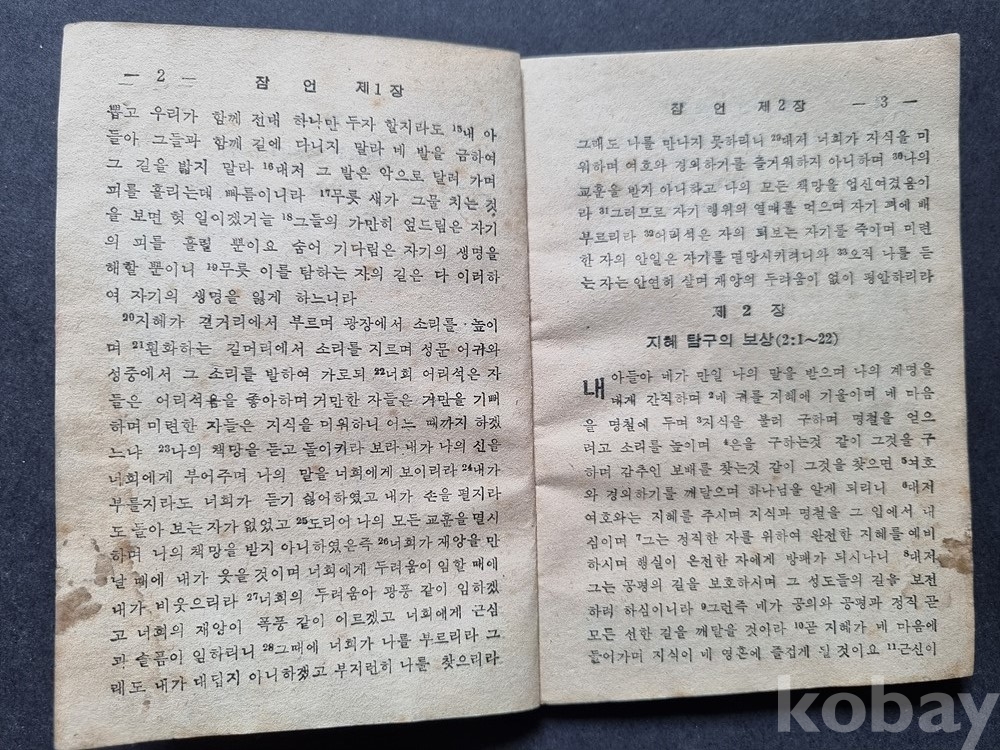 — 2 —
잠 언 제1장
뽑고 우리가 함께 전대 하나만 두자 할지라도 15내 아
들아 그들과 함께 길에 다니지 말라 네 발을 금하여
그 길을 밟지 말라 16대저 그 발은 악으로 달려 가며
피를 흘리는데 빠름이니라 17무릇 새가 그물 치는 것
을 보면 헛 일이겠거늘 18그들의 가만히 엎드림은 자기
의 피를 흘릴 뿐이요 숨어 기다림은 자기의 생명을
해할 뿐이니 19무릇 이를 탐하는 자의 길은 다 이러하
여 자기의 생명을 잃게 하느니라
20지혜가 결거리에서 부르며 광장에서 소리를 높이
며 21훤화하는 길머리에서 소리를 지르며 성문 어귀와
성중에서 그 소리를 발하여 가로되 22너희 어리석은 자
들은 어리석음을 좋아하며 거만한 자들은 거만을 기뻐
하며 미련한 자들은 지식을 미워하니 어느 때까지 하겠
느냐 23나의 책망을 듣고 돌이키라 보라 내가 나의 신을
너희에게 부어주며 나의 말을 너희에게 보이리라 24내가
부를지라도 너희가 듣기 싫어하였고 내가 손을 펼지라
도 돌아 보는 자가 없었고 25도리어 나의 모든 교훈을 멸시
하며 나의 책망을 받지 아니하였은즉 26너희가 재앙을 만
날 때에 내가 웃을 것이며 너희에게 두려움이 임할 때에
내가 비웃으리라 27너희의 두려움이 광풍 같이 임하겠
고 너희의 재앙이 폭풍 같이 이르겠고 너희에게 근심
과 슬픔이 임하리니 28그때에 너희가 나를 부르리라 그
래도 내가 대답지 아니하겠고 부지런히 나를 찾으리라
잠 언 제2장 — 3 —
그래도 나를 만나지 못하리니 29대저 너희가 지식을 미
워하며 여호와 경외하기를 즐거워하지 아니하며 30나의
교훈을 받지 아니하고 나의 모든 책망을 업신여겼음이
라 31그러므로 자기 행위의 열매를 먹으며 자기 꾀에 배
부르리라 32어리석은 자의 퇴보는 자기를 죽이며 미련
한 자의 안일은 자기를 멸망시키려니와 33오직 나를 듣
는 자는 안연히 살며 재앙의 두려움이 없이 평안하리라
제 2 장
지혜 탐구의 보상(2:1~22)
내 아들아 네가 만일 나의 말을 받으며 나의 계명을
네게 간직하며 2네 귀를 지혜에 기울이며 네 마음
을 명철에 두며 3지식을 불러 구하며 명철을 얻으
려고 소리를 높이며 4은을 구하는것 같이 그것을 구
하며 감추인 보배를 찾는것 같이 그것을 찾으면 5여호
와 경외하기를 깨달으며 하나님을 알게 되리니 6대저
여호와는 지혜를 주시며 지식과 명철을 그 입에서 내
심이며 7그는 정직한 자를 위하여 완전한 지혜를 예비
하시며 행실이 온전한 자에게 방패가 되시나니 8대저
그는 공평의 길을 보호하시며 그 성도들의 길을 보전
하려 하심이니라 9그런즉 네가 공의와 공평과 정직 곧
모든 선한 길을 깨달을 것이라 10곧 지혜가 네 마음에
들어가며 지식이 네 영혼에 즐겁게 될 것이요 11근신이
kobay